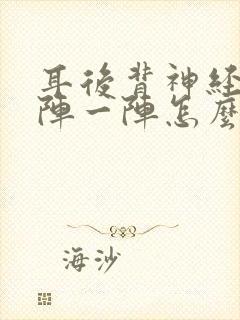 耳後背神経
陣一陣怎麼
海沙